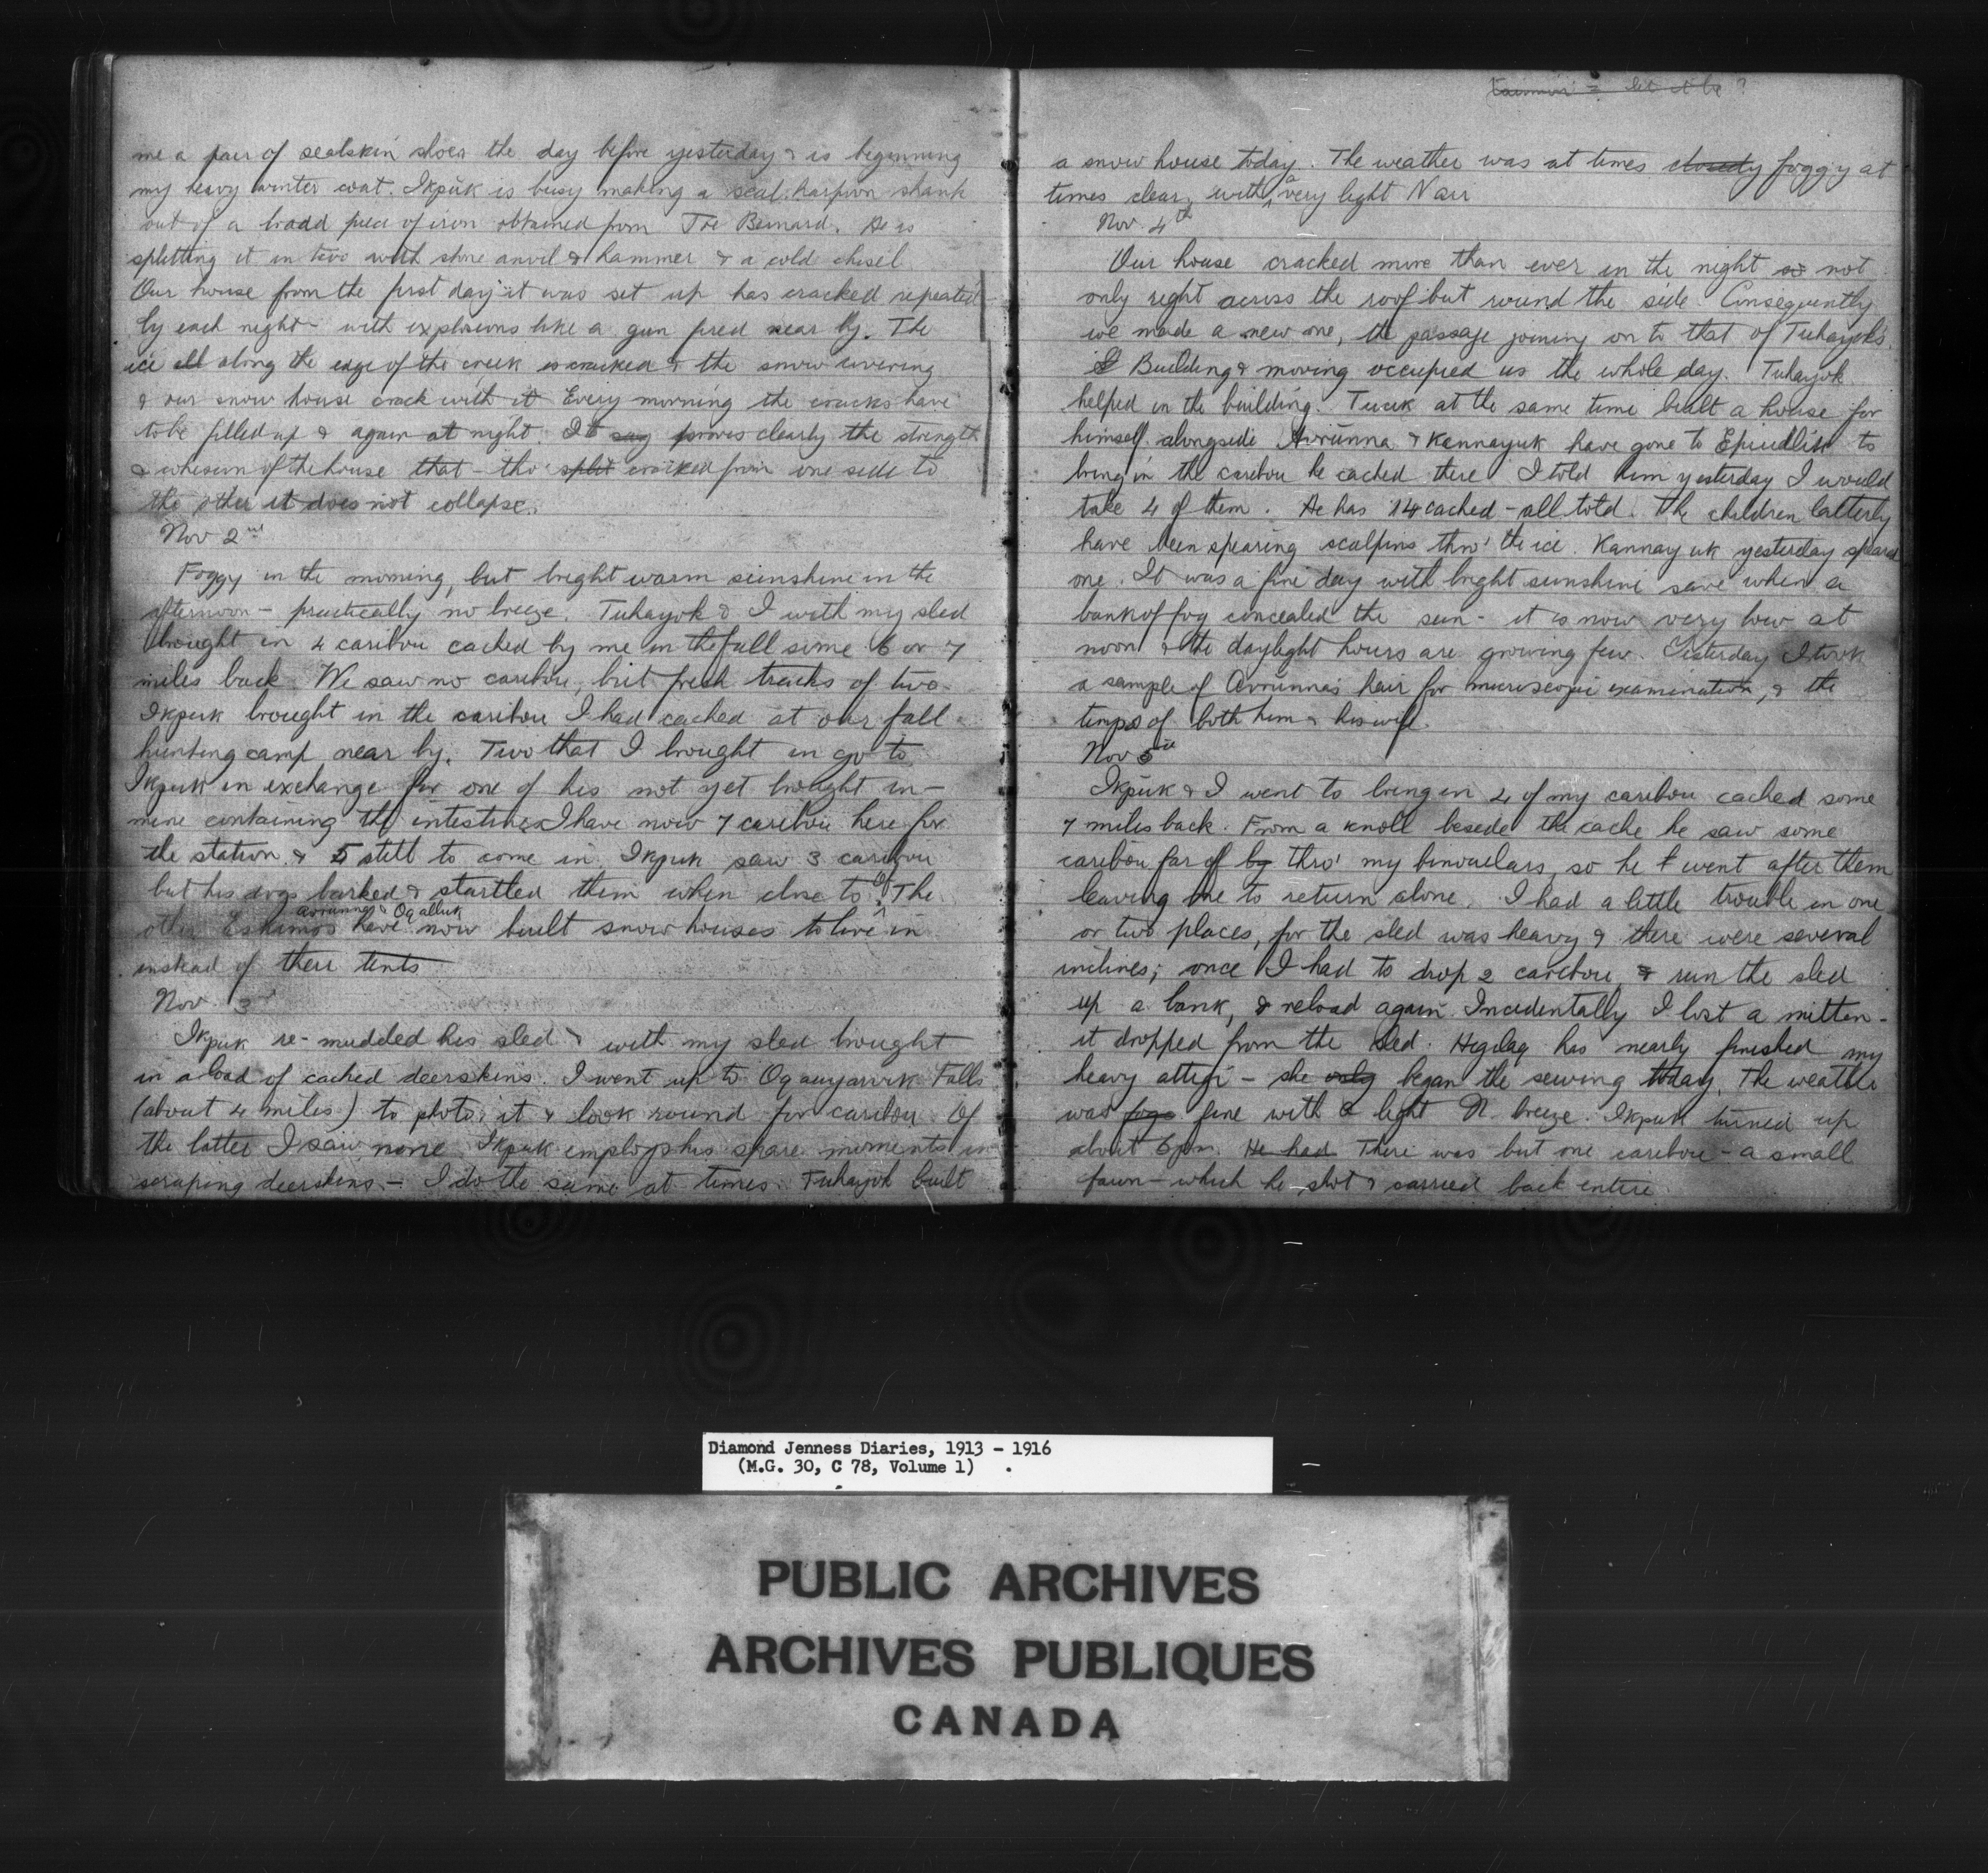 me a pair of sealskin shoes the day before yesterday & is beginning
my heavy winter coat. Ikpuk is busy making a seal harpoon shank
out of a broad piece of iron obtained from Joe Bernard. He is
splitting it in two with stone anvil & hammer & a cold chisel
Our house from the first day it was set up has cracked repeated-
ly each night - with explosions like a gun fired near by. The
ice all along the edge of the creek is cracked & the snow covering
& our snow house crack with it Every morning the cracks have
to be filled up & again at night. It say proves clearly the strength
& cohesion of the house that - tho' split cracked from one side to
the other it does not collapse.
Nov 2nd
Foggy in the morning, but bright warm sunshine in the
afternoon - practically no breeze. Tuhayok & I with my sled
brought in 4 caribou cached by me in the fall some 6 or 7
miles back. We saw no caribou, but fresh tracks of two.
Ikpuk brought in the caribou I had cached at our fall
hunting camp near by. Two that I brought in go to
Ikpuk in exchange for one of his not yet brought in -
mine containing the intestines I have now 7 caribou here for
the station & 5 still to come in. Ikpuk saw 3 caribou
but his dogs barked & startled them when close to. The
avrunna & Oqalluk
other Eskimos have now built snow houses to live in
instead of their tents
Nov. 3rd
Ikpuk re-mudded his sled & with my sled brought
in a load of cached deerskins. I went up to Oqauyarvik Falls
(about 4 miles) to photo it & look round for caribou. Of
the latter I saw none. Ikpuk employs his spare moments in
scraping deerskins - I do the same at times. Tuhayok built
= let it be?
a snow house today. The weather was at times cloudy foggy at
times clear, with a very light N air
Nov. 4th
Our house cracked more than ever in the night so not
only right across the roof but round the side. Consequently
we made a new one, the passage joining on to that of Tuhayok's.
Building & moving occupied us the whole day. Tuhayok
helped in the building. Tucik at the same time built a house for
himself alongside Avrunna & Kannayuk have gone to Epiullik to
bring in the caribou he cached there I told him yesterday I would
take 4 of them. He has 14 cached - all told. The children latterly
have been spearing sculpins thro' the ice. Kannayuk yesterday speared
one. It was a fine day with bright sunshine save when a
bank of fog concealed the sun - it is now very low at
noon & the daylight hours are growing few. Yesterday I took
a sample of Avrunna's hair for microscopic examination, & the
temps of both him & his wife.
Nov 5th
Ikpuk & I went to bring in 4 of my caribou cached some
7 miles back. From a knoll beside the cache he saw some
caribou far off by thro' my binoculars, so he went after them
leaving me to return alone. I had a little trouble in one
or two places, for the sled was heavy & there were several
inclines; once I had to drop 2 caribou, & run the sled
up a bank, & reload again. Incidentally I lost a mitten -
it dropped from the sled. Higilaq has nearly finished my
heavy attigi - she only began the sewing today. The weather
was fogg fine with a light N. breeze. Ikpuk turned up
about 6 pm. He had There was but one caribou - a small
fawn - which he shot & carried back entire
Diamond Jenness Diaries, 1913 - 1916
(M.G. 30, C 78, Volume 1)
PUBLIC ARCHIVES
ARCHIVES PUBLIQUES
CANADA